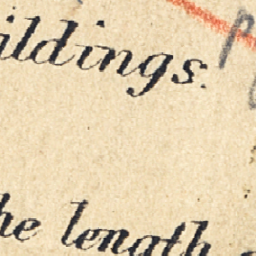 ildings.
he length